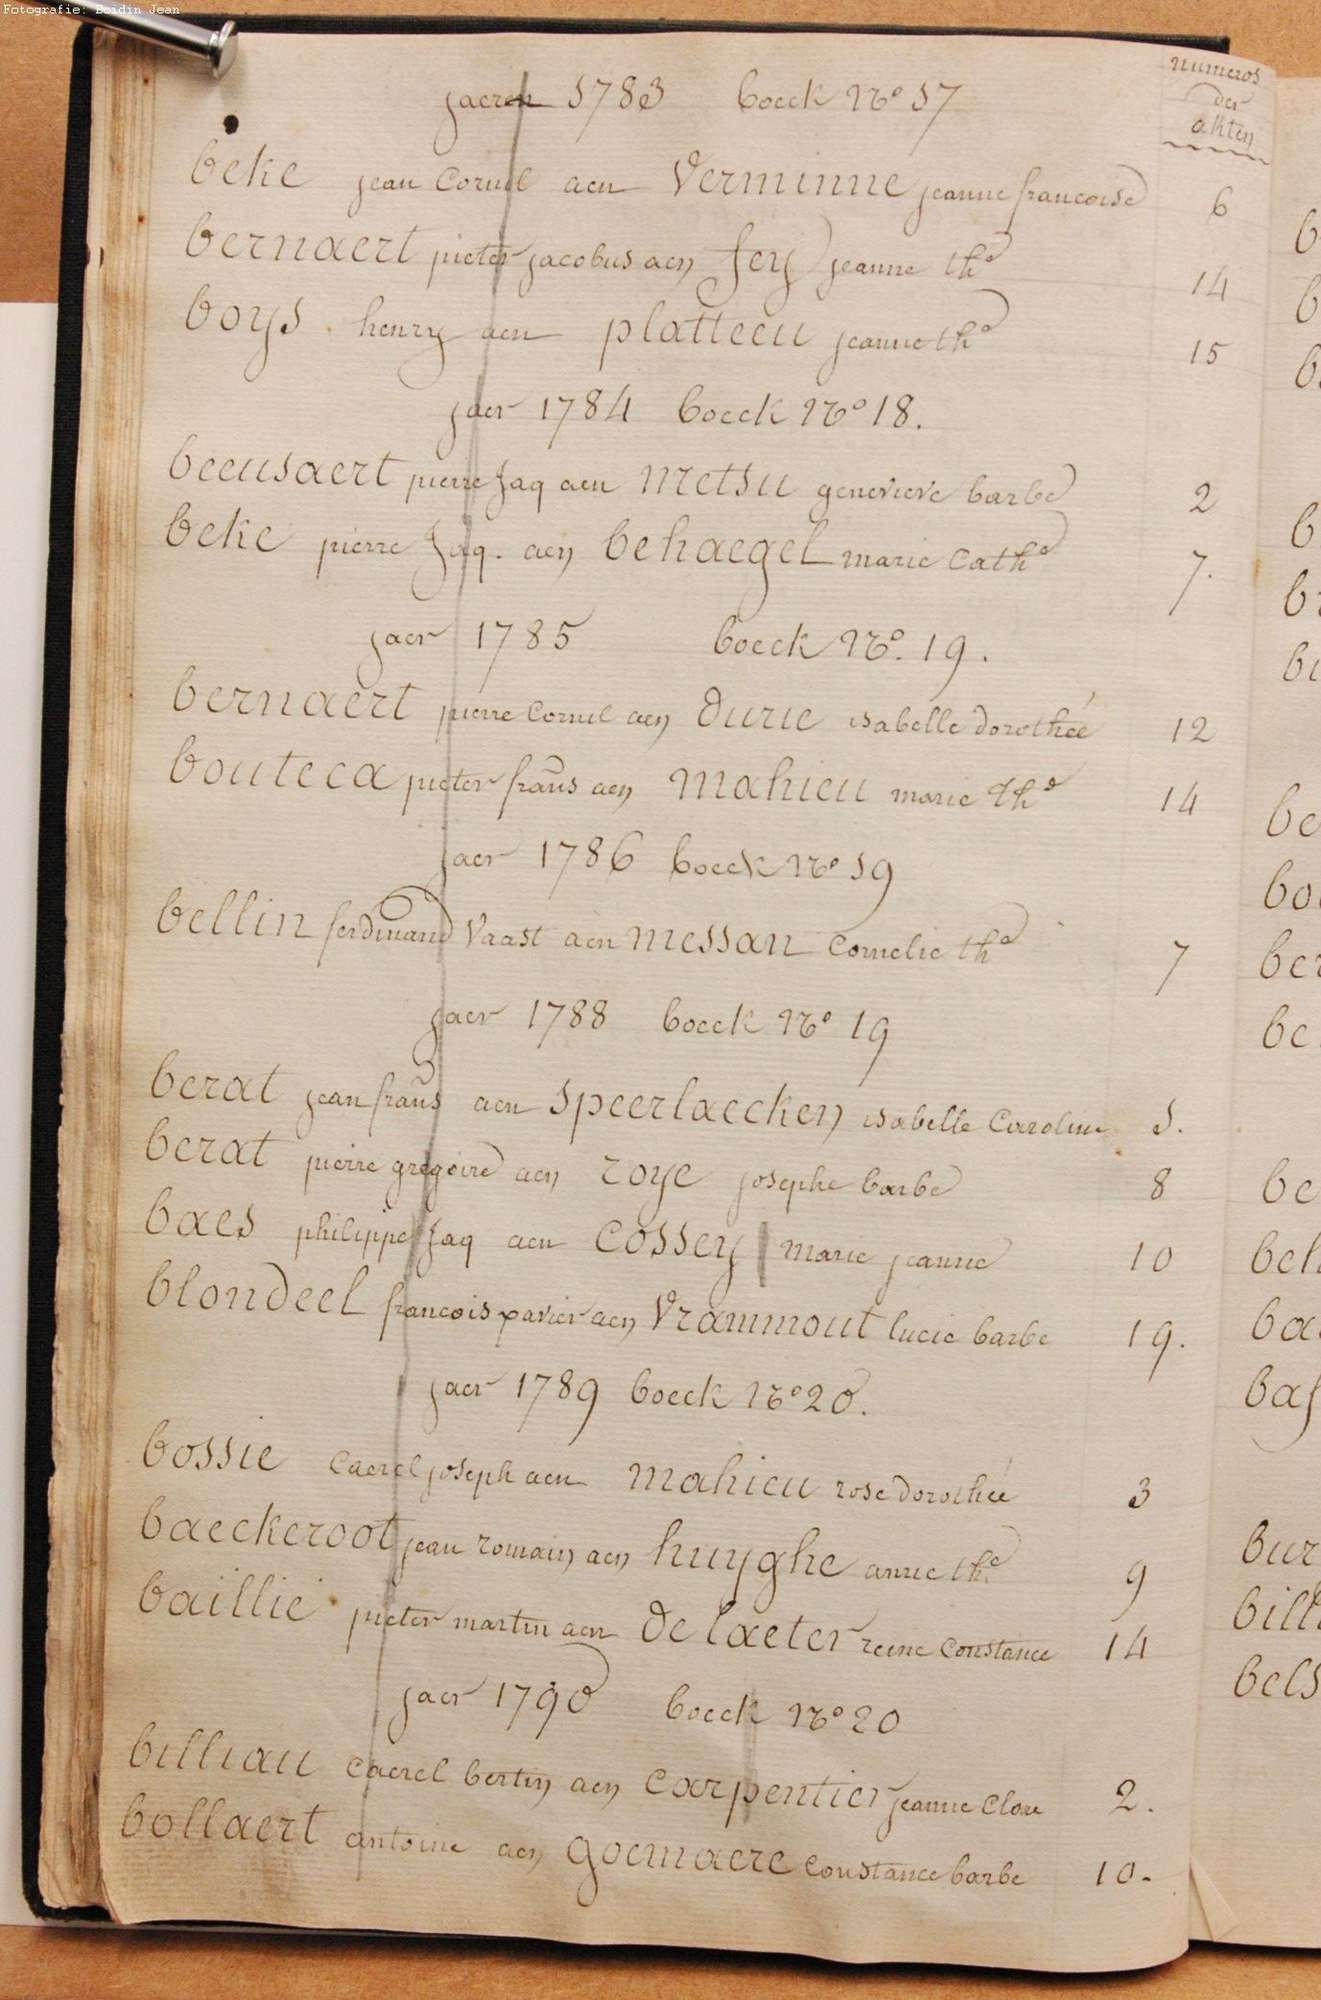 Fotografie: Boidin Jean
numeros
der
akten
jaeren 1783 boeck No 17
beke jean Cornil aen Verminne jeanne francoise 6
bernaert pieter jacobus aen fey jeanne the 14
boys henry aen platteeu jeanne the 15
jaer 1784 boeck No 18.
beeusaert pierre Jaq aen metsu genevieve barbe 2
beke pierre Jaq. aen behaegel marie Cathe 7.
jaer 1785 boeck No. 19.
bernaert pierre Cornil aen durie isabelle dorothée 12
bouteca pieter frans aen mahieu marie the 14
jaer 1786 boeck No 19
bellin ferdinand Vaast aen messan Cornelie the 7
jaer 1788 boeck No 19
berat jean frans aen speerlaecken isabelle Caroline 5.
berat pierre gregoire aen roye josephe barbe 8
baes philippe Jaq aen Cossey marie jeanne 10
blondeel francois xavier aen Vrammout lucie barbe 19.
jaer 1789 boeck No 20.
bossie Caerel joseph aen mahieu rose dorothée 3
baeckeroot jean romain aen huyghe anne the 9
baillie pieter martin aen de laeter reine Constance 14
jaer 1790 boeck No 20
billiau Caerel bertin aen Carpentier jeanne Clare 2.
bollaert antoine aen goemaere Constance barbe 10.